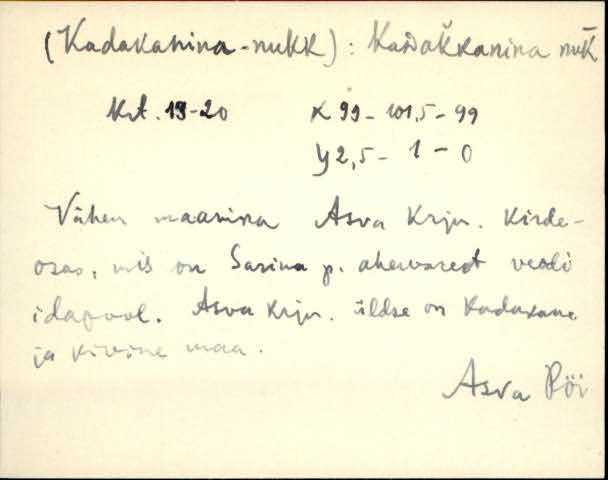 (Kadakanina-nukk): kaðak̆kanina nuk̆
Krt. 19-20 X 99 - 101,5 - 99
Y 2,5 - 1 - 0
Vähem maanina Asva Krjn. kirde-
osas, mis on Sarina p. ahervarest veidi
idapool. Asva krjn. üldse on kadakane
ja kivine maa.
Asva Pöi